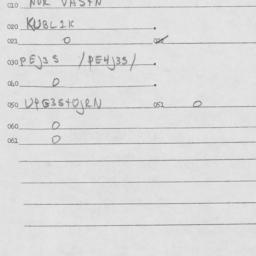 010 NUR VASTN
020 KUBLIK .
021 0 022
030 PEJ3S /PE4J3S/ .
040 0 .
050 UPG3STOJRN 051 0
060 0
061 0